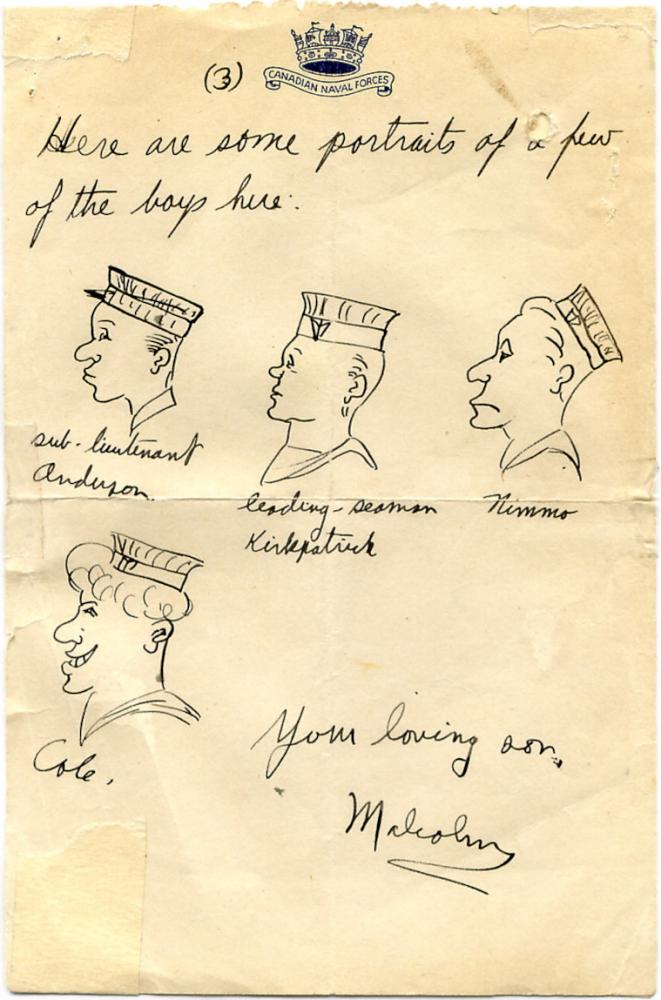 (3)
CANADIAN NAVAL FORCES
Here are some portraits of a few
of the boys here:
sub-lieutenant
Anderson.
leading-seaman
Kirkpatrick
Nimmo
Cole.
Your loving son,
Malcolm